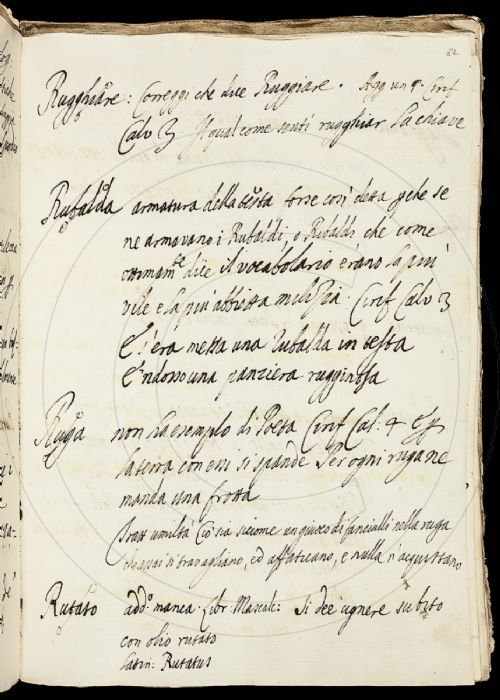 82
Rugghiare: Correggi che dice Ruggiare. Agg un 9. Cirif
Calv 3 Il qual come sentì rugghiar la chiave
Rubalda armatura della testa forse così detta perche se
ne armavano i Rubaldi, o Ribaldi che come
ottimam.te dice il vocabolario erano la più
vile e la più abbietta milizia. Cirif Calv 3
E s'era messa una Rubalda in testa
E 'ndosso una panziera rugginosa
Ruga non ha esemplo di Poeta Cirif Cal: 4
la terra con essi si spande Per ogni ruga ne
manda una frotta
Tratt umiltà siccome un giuoco di fancialli nella ruga
che assai si travagliano, ed affaticano, e nulla n'acquistano
Rutato add.o manca. Libr: Mascalc: Si dee ugnere subito
con olio rutato
latin: Rutatus